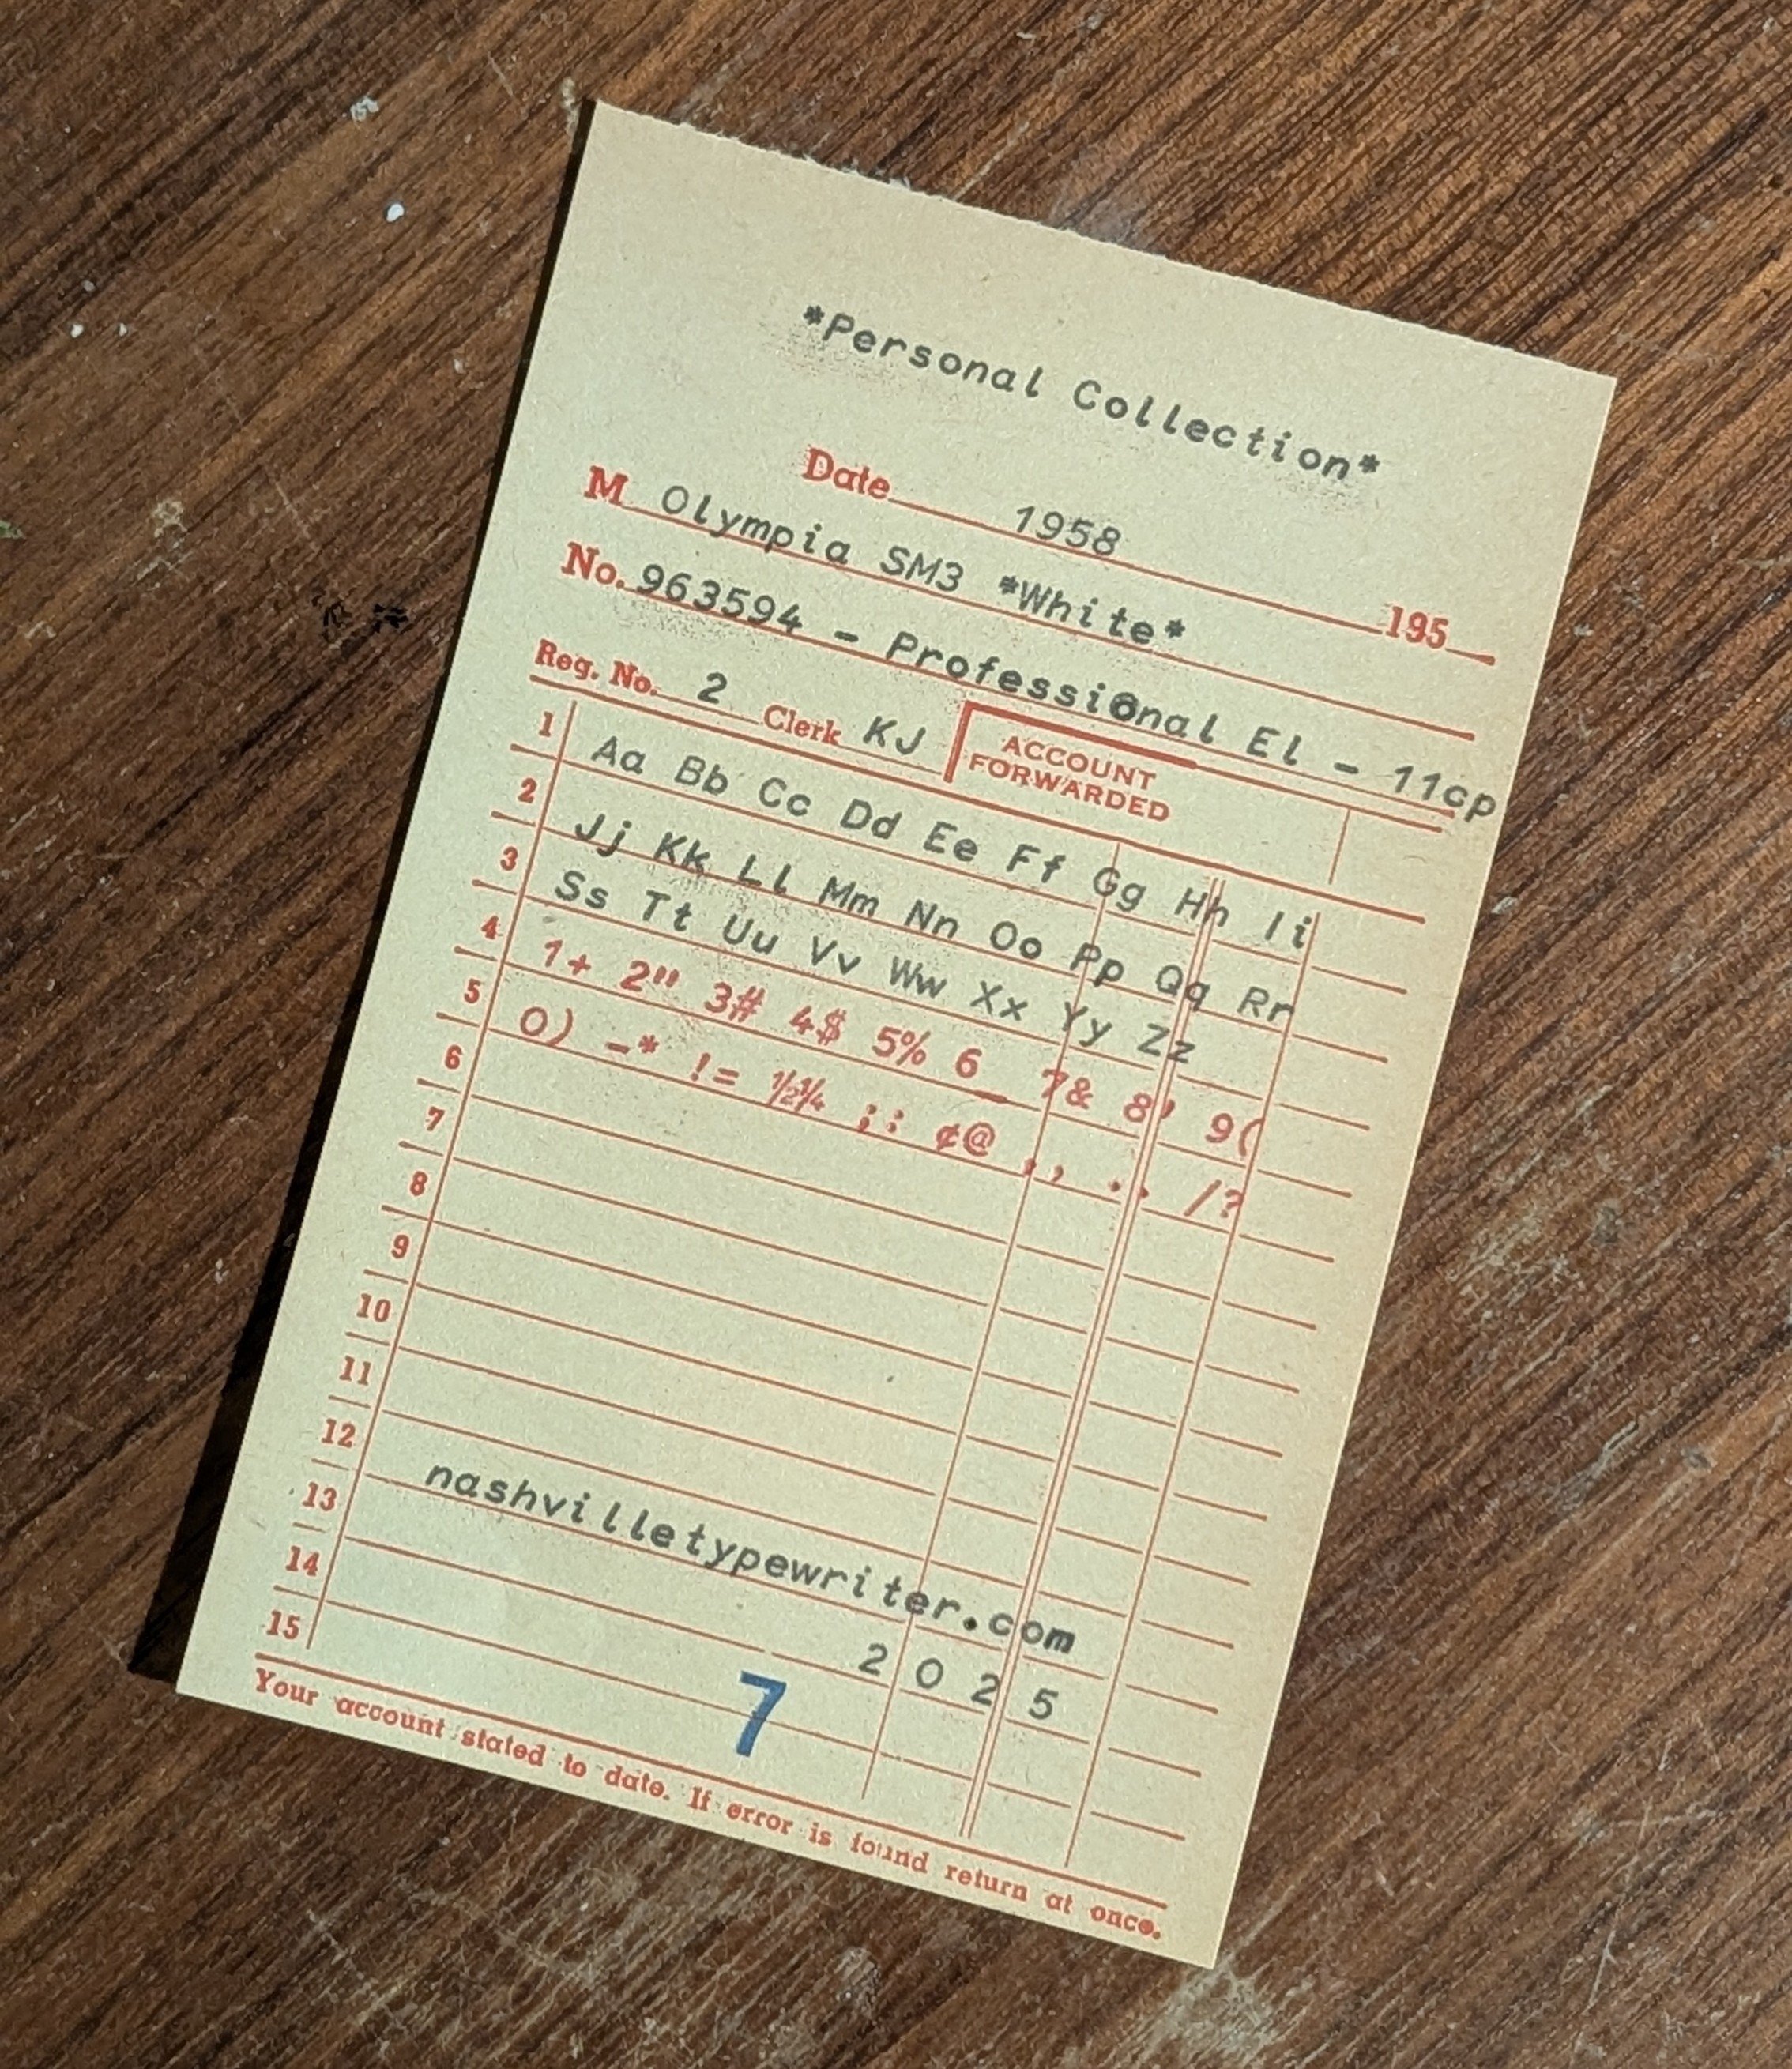 *Personal Collection*
Date 1958 195
M Olympia SM3 *White*
No. 963594 - Professional El - 11cp
Reg. No. 2 Clerk KJ ACCOUNT FORWARDED
1 Aa Bb Cc Dd Ee Ff Gg Hh Ii
2 Jj Kk Ll Mm Nn Oo Pp Qq Rr
3 Ss Tt Uu Vv Ww Xx Yy Zz
4 1+ 2" 3# 4$ 5% 6_ 7& 8' 9(
5 0) -* != ½¼ ;: ¢@ ,, .. /?
6
7
8
9
10
11
12
13 nashvilletypewriter.com
14 2 0 2 5
15 7
Your account stated to date. If error is found return at once.